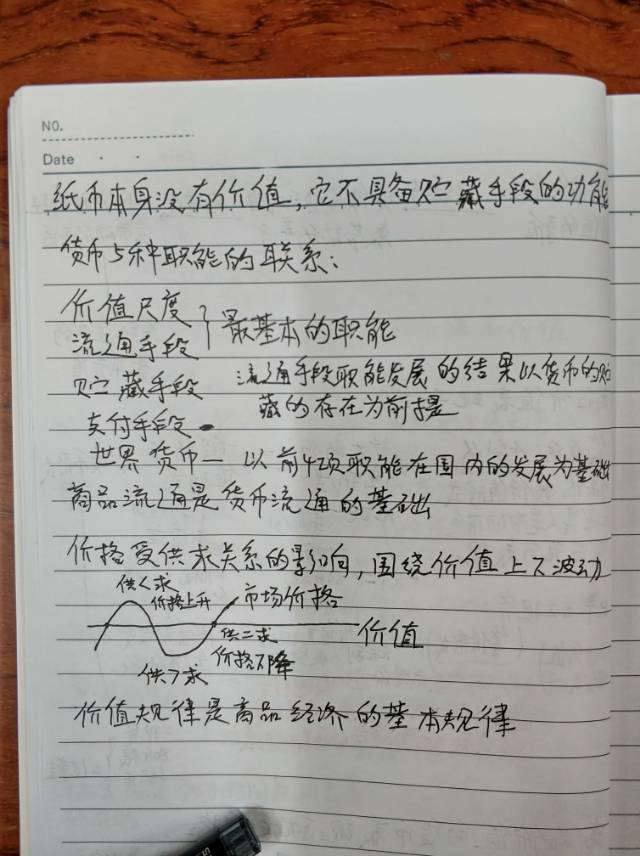 NO.
Date
纸币本身没有价值，它不具备贮藏手段的功能
货币5种职能的联系：
价值尺度
流通手段
最基本的职能
贮藏手段 流通手段职能发展的结果以货币的贮
藏的存在为前提
支付手段
世界货币— 以前4项职能在国内的发展为基础
商品流通是货币流通的基础
价格受供求关系的影响，围绕价值上下波动
供<求
价格上升 市场价格
供=求 价值
价格下降
供>求
价值规律是商品经济的基本规律